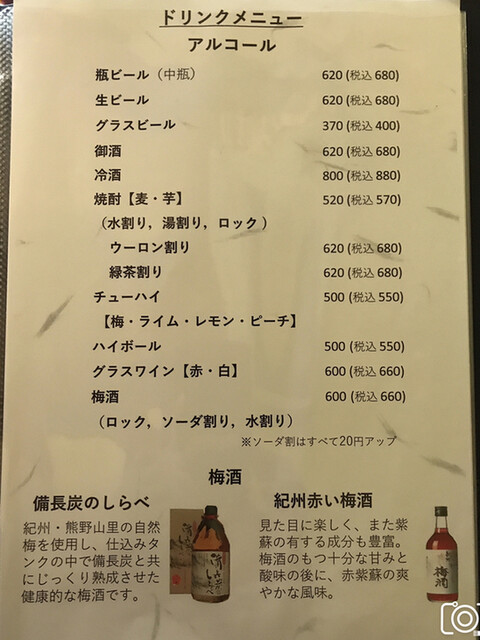 ドリンクメニュー
アルコール
瓶ビール（中瓶） 620 (税込 680)
生ビール 620 (税込 680)
グラスビール 370 (税込 400)
御酒 620 (税込 680)
冷酒 800 (税込 880)
焼酎【麦・芋】 520 (税込 570)
（水割り，湯割り，ロック）
ウーロン割り 620 (税込 680)
緑茶割り 620 (税込 680)
チューハイ 500 (税込 550)
【梅・ライム・レモン・ピーチ】
ハイボール 500 (税込 550)
グラスワイン【赤・白】 600 (税込 660)
梅酒 600 (税込 660)
（ロック，ソーダ割り，水割り）
※ソーダ割はすべて20円アップ
梅酒
備長炭のしらべ
紀州・熊野山里の自然
梅を使用し、仕込みタ
ンクの中で備長炭と共
にじっくり熟成させた
健康的な梅酒です。
紀州赤い梅酒
見た目に楽しく、また紫
蘇の有する成分も豊富。
梅酒のもつ十分な甘みと
酸味の後に、赤紫蘇の爽
やかな風味。
梅酒